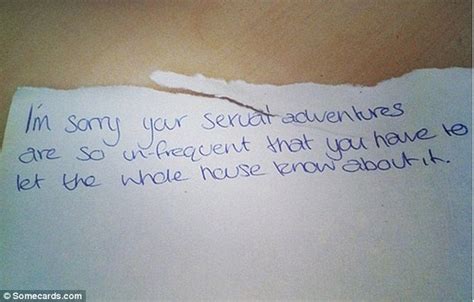 I'm sorry your sexual adventures
are so un-frequent that you have to
let the whole house know about it.
© Somecards.com